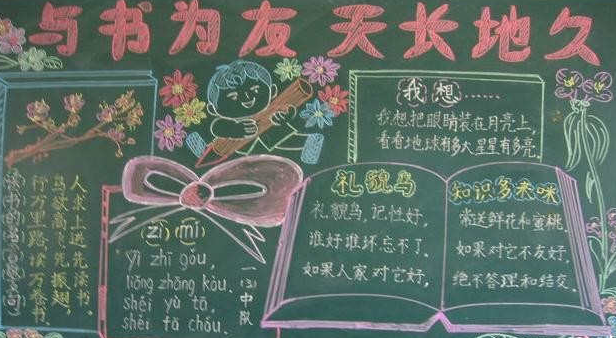 与书为友 天长地久
我想……
我想把眼睛装在月亮上,
看看地球有多大星星有多亮.
人求上进先读书,
鸟欲高飞先振翅.
行万里路读万卷书.
(zì) (mí)
yī zhī gǒu,
liǎng zhāng kǒu.
shéi yù tā,
shéi tā chǒu.
一(3)中队
礼貌鸟
礼貌鸟,记性好,
谁好谁坏忘不了.
如果人家对它好,
知识多来咪
常送鲜花和蜜桃.
如果对它不友好,
绝不答理和结交.